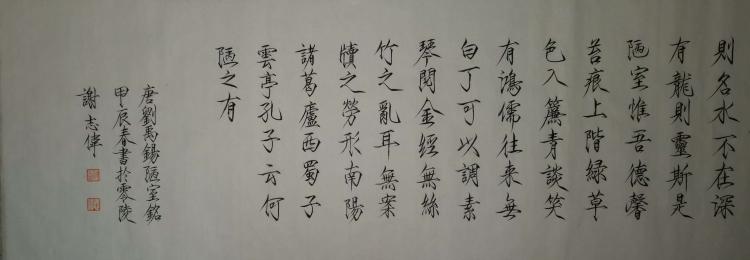 則名水不在深
有龍則靈斯是
陋室惟吾德馨
苔痕上階緑草
色入簾青談笑
有鴻儒往来無
白丁可以調素
琴閱金經無絲
竹之亂耳無案
牘之勞形南陽
諸葛廬西蜀子
雲亭孔子云何
陋之有
唐劉禹錫陋室銘
甲辰春書於零陵
謝志偉